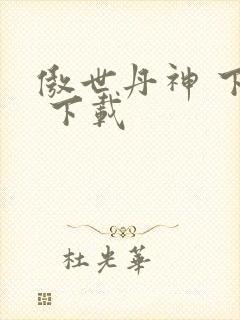 傲世丹神 下
下載
杜光華